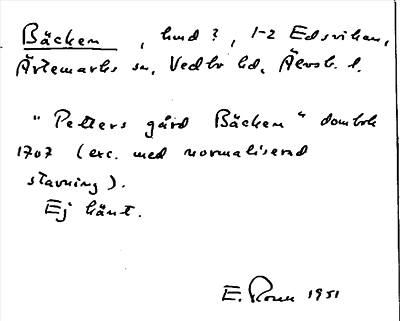 Bäcken, hmd?, 1-2 Edsvikan,
Ärtemarks sn, Vedbo hd, Älvsb. l.
"Petters gård Bäcken" dombok
1707 (exc. med normaliserad
stavning).
Ej känt.
E. 1951